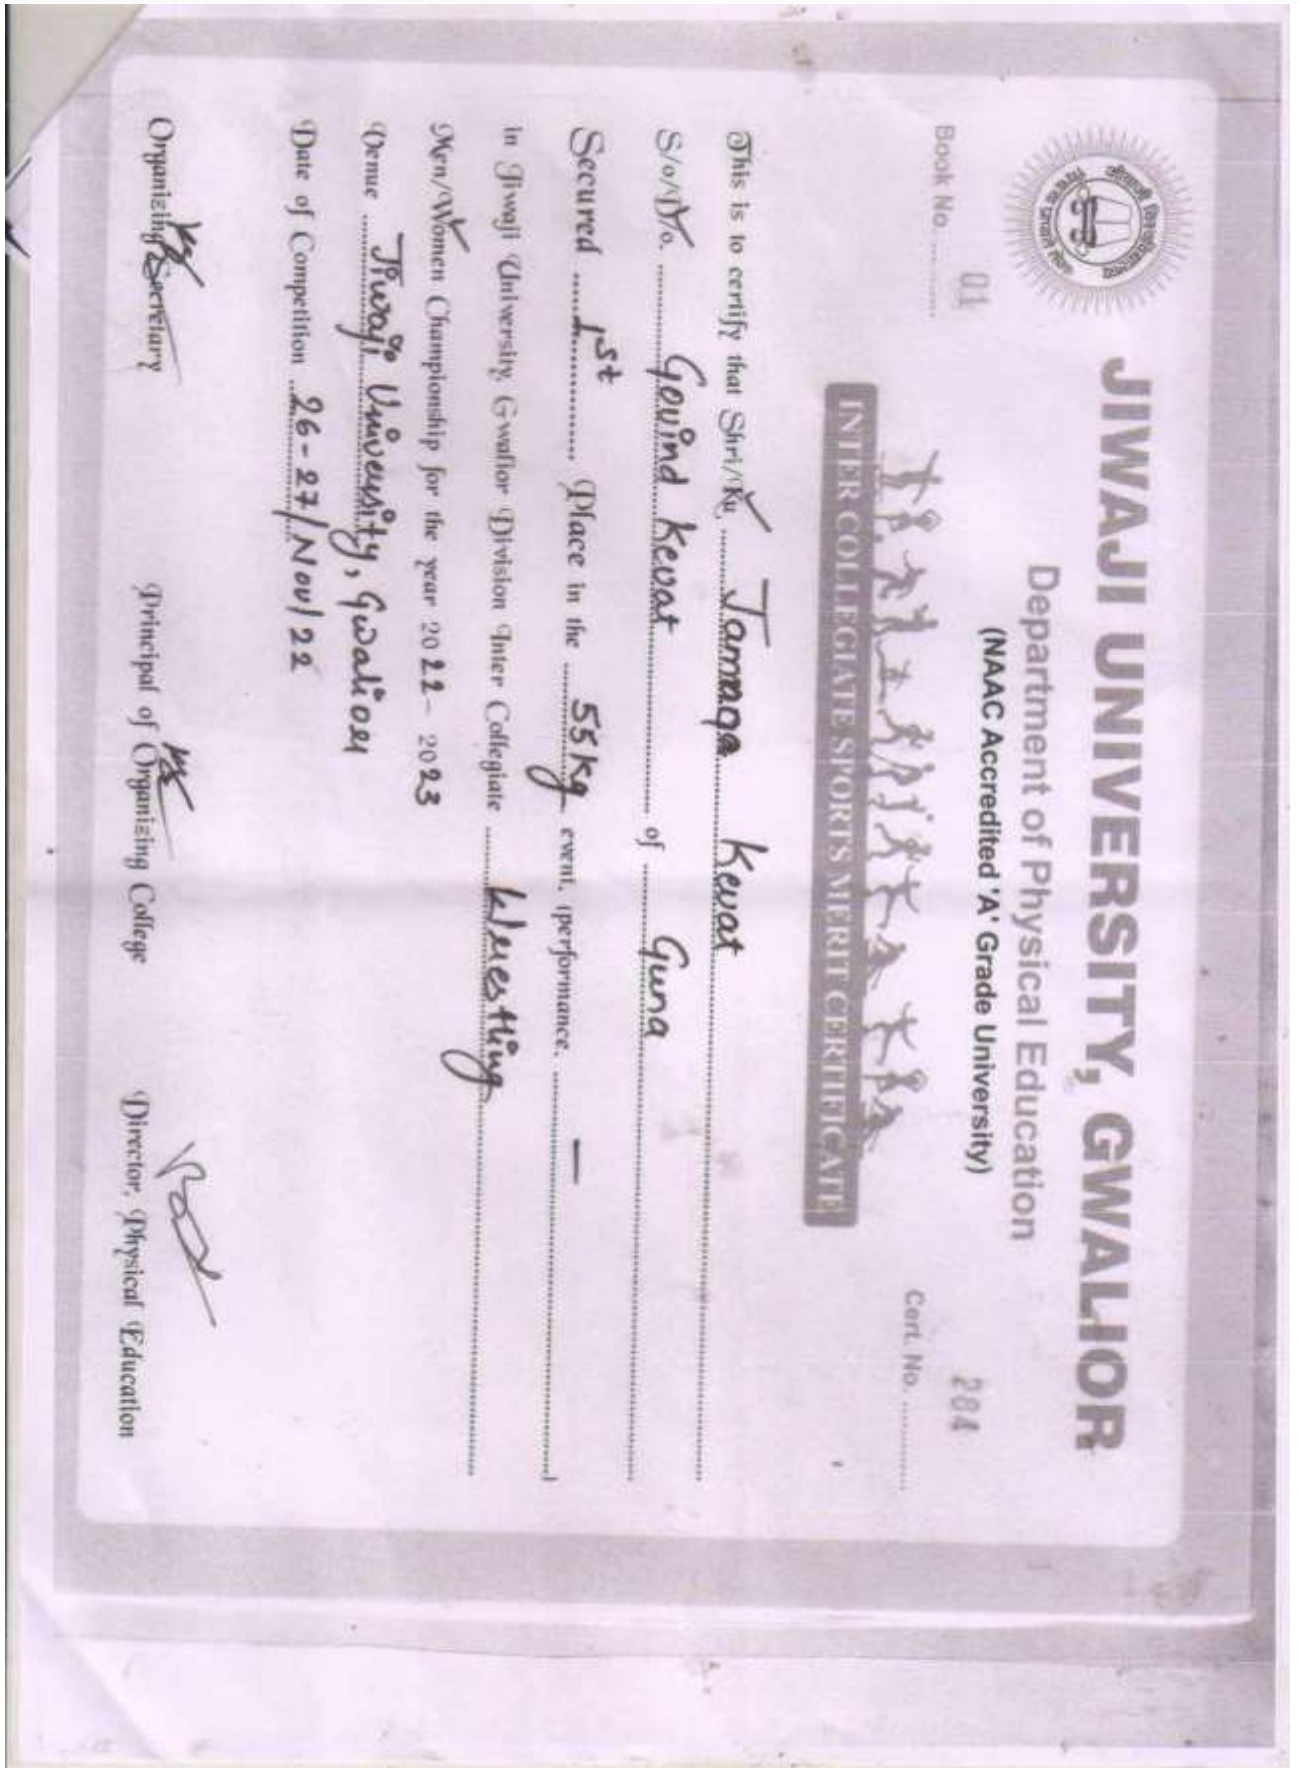 JIWAJI UNIVERSITY, GWALIOR
Department of Physical Education
(NAAC Accredited 'A' Grade University)
Book No. .......... 01
Cert. No. .......... 284
INTER COLLEGIATE SPORTS MERIT CERTIFICATE
This is to certify that Shri/Ku ..... Jamana Kevat
S/o/D/o. ..... Govind Kevat ..... of ..... Guna
Secured ..... 1st ..... Place in the ..... 55 Kg event, (performance. ..... — .....)
in Jiwaji University, Gwalior Division Inter Collegiate ..... Wrestling
Men/Women Championship for the year 2022 - 2023
Venue ..... Jiwaji University, Gwalior
Date of Competition ..... 26-27/Nov/22
Organizing Secretary
Principal of Organizing College
Director, Physical Education